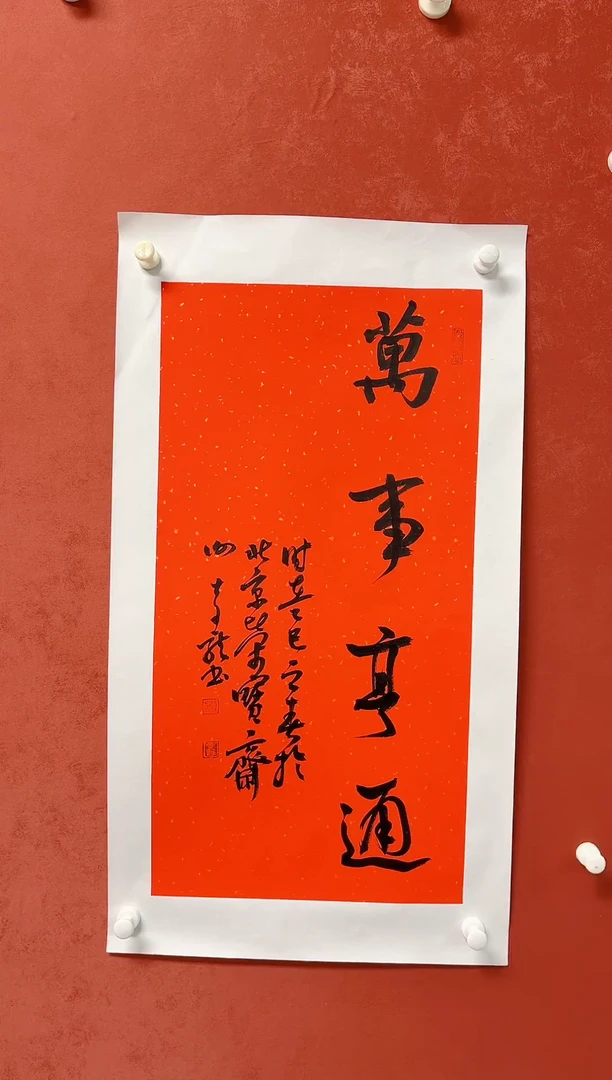 萬事亨通
時在乙巳之春於
北京榮寶齋